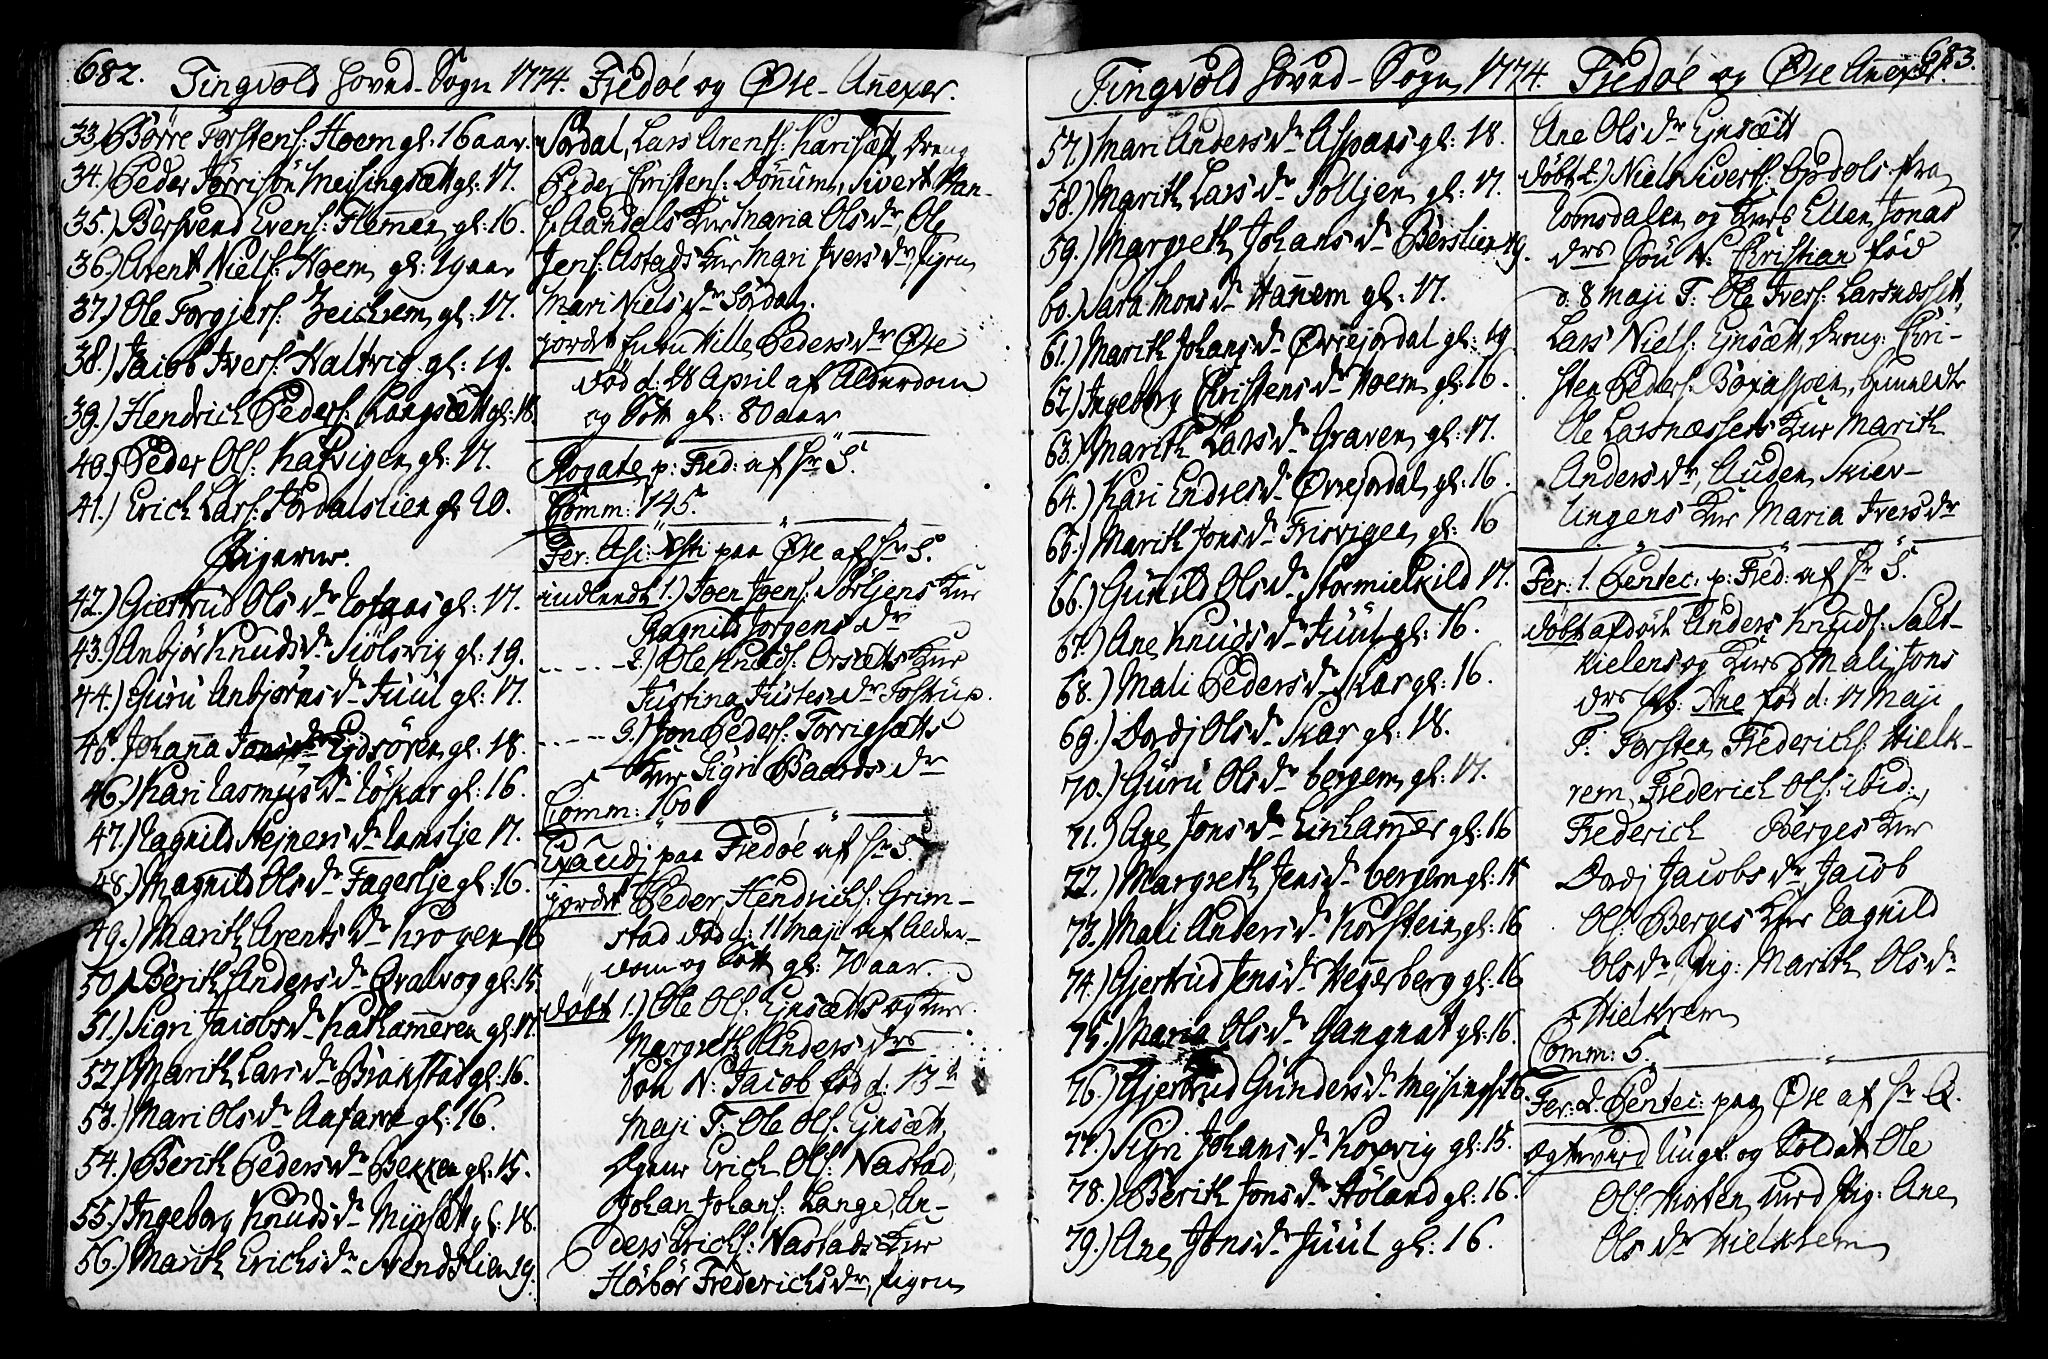 682. Tingvold Hoved-Sogn 1774. Fredøe og Øre-Anexer.
33.) Børre Torstens: Hoem gl: 16 aar.
34.) Peder Jörrisön Meisingsætt gl: 17.
35.) Bersvend Evens: Flemmen gl: 16.
36.) Arent Niels: Hoem gl: 19 aar
37.) Ole Torgjers: gl: 17.
38.) Jacob Ivers: Haltvig gl: 19.
39.) Hendrich Peders: Langsætt gl: 18
40.) Peder Ols: Kafvigen gl: 17.
41.) Erich Lars: Tordalslien gl 20.
Pigerne.
42.) Giertrud Ols Dr gl: 17.
43.) Anbjör Knuds Dr Siölsvig gl: 19.
44.) Guru Anbjörns Dr Juul gl: 17.
45. Johanna Jons Dr Eidsören gl: 18.
46.) Kari Rasmus Dr Röskar gl: 16.
47.) Ragnild Stejners Dr Ramslje 17.
48.) Magnild Ols Dr Fagerslje gl: 16.
49.) Marith Arents Dr Krogen 16
50.) Berith Anders Dr Qvalvog gl: 15
51.) Sigri Jacobs Dr Kathammeren gl: 17.
52.) Marith Lars Dr Brakstad gl: 16.
53.) Mari Ols Dr Aafarne gl: 16.
54.) Berith Peders Dr Bekken gl: 15.
55.) Ingeborg Knuds Dr gl: 18.
56.) Marith Erichs Dr Svendslien 19.
Sördal, Lars Arents: Karisætt, Dreng
Peder Christens: Dönnum, Sivert Han-
s: Aandals Kur Maria Ols Dr, Ole
Jens: Astads Kur Mari Ivers Dr, Pigen
Mari Niels Dr Sördal.
jordet Enku Hille Peders Dr Øre
död d: 28 April af Alderdom
og Sött gl: 80 aar
Rogate p: Fred: af Hr S.
Comm: 145.
Fer: Asc: Xsti paa Øre af Hr S.
indledt 1.) Joen Joens: Söljens Kur
Ragnild Jörgens Dr
2.) Ole Knuds: Orsætts Kur
Justina Justes Dr Tostrup.
3.) Jon Peders: Torrigsætts
Kur Sigri Baards Dr
Comm: 160
Exaudj paa Fredøe af Hr S.
jordet Peder Hendrichs: Grim-
stad död d: 11 Maji af Alder-
dom og Sött gl: 70 aar.
döbt 1.) Ole Ols: Ejnsætts og Kurs
Margreth Anders Drs
Sön N: Jacob föd d: 13de
Maji T: Ole Ols: Ejnsætt,
Erich Ols: Nastad,
Johan Johans: Lange, An-
ders Erichs: Nastads Kur
Hörbör Frederichs Dr, Pigen
Tingvold Hoved-Sogn 1774. Fredøe og Øre Anexer. 683.
57.) Mari Anders Dr Aspaas gl: 18.
58.) Marith Lars Dr Solljen gl: 17.
59.) Margreth Johans Dr Berslien 19.
60.) Sara Mons Dr Hannem gl: 17.
61.) Marith Johans Dr Øvrejordal gl: 19
62.) Ingeborg Christens Dr Hoem gl: 16.
63.) Marith Lars Dr Graven gl: 17.
64.) Kari Endres Dr Øvrejordal gl: 16.
65.) Marith Jons Dr Frisvigen gl: 16
66.) Gunild Ols Dr Stormielkild 17.
67.) Ane Knuds Dr Juul gl: 16.
68.) Mali Peders Dr Skar gl: 16.
69.) Dordj Ols Dr Skar gl: 18.
70.) Guru Ols Dr bergem gl: 17.
71.) Ane Jons Dr Einhammer gl: 16
72.) Margreth Jens Dr bergem gl: 15
73.) Mali Anders Dr Korstein gl: 16
74.) Gjertrud Jens Dr Hegerberg gl: 16
75.) Maria Ols Dr Gangnat gl: 16.
76.) Gjertrud Gunders Dr Mejsings: 16.
77.) Sigri Johans Dr Koxvig gl: 15.
78.) Berith Jons Dr Höland gl: 16.
79.) Ane Jons Dr Juul gl: 16.
Ane Ols Dr Ejnsætt
döbt 2.) Niels Siverts: Opdöls fra
Romsdalen og Kurs Ellen Jonas
Drs Sön N: Christian föd
d. 8 Maji T: Ole Ivers: Larsnæssett,
Lars Niels: Ejnsætt, Dreng: Chri-
sten Peders: Böxassen, beneldte
Ole Larsnæssets Kur Marith
Anders Dr, Auden Skier-
lingens Kur Maria Ivers Dr
Fer: 1. Pentec: p: Fred: af Hr S.
döbt afdöde Anders Knuds: Salt-
kielens og Kurs Mali Jons
Drs Pb: Ane föd d: 17 Maji
T: Torsten Frederichs: Hielk-
rem, Frederich Ols: ibid:,
Frederich Berges Kur
Dordj Jacobs Dr, Jacob
Ols: Berges Kur Ragnild
Ols Dr, Pig: Marith Ols Dr
Hielkrem
Comm: 5.
Fer: 2. Pentec: paa Øre af Hr A.
Ægteviede Ungk: og Soldat Ole
Ols: Morten med Pig: Ane
Ols Dr Hielkrem